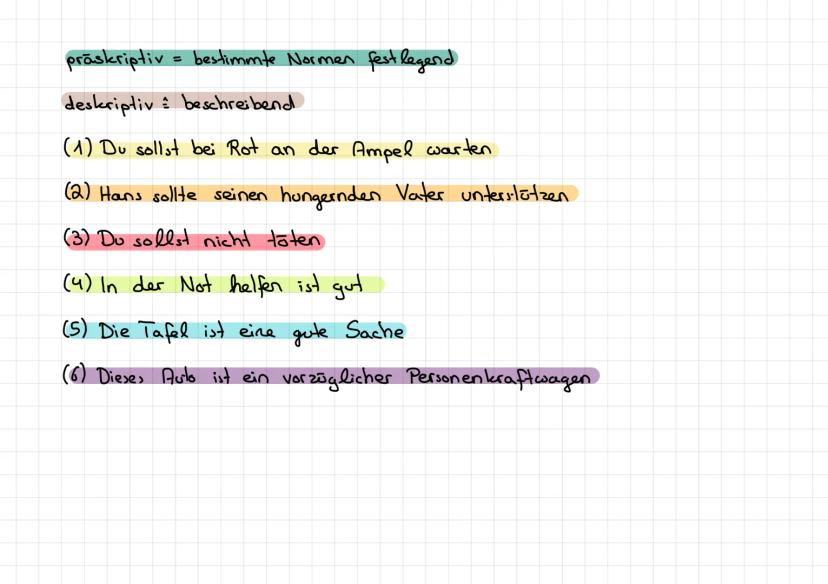 präskriptiv = bestimmte Normen festlegend
deskriptiv ≙ beschreibend
(1) Du sollst bei Rot an der Ampel warten
(2) Hans sollte seinen hungernden Vater unterstützen
(3) Du sollst nicht töten
(4) In der Not helfen ist gut
(5) Die Tafel ist eine gute Sache
(6) Dieses Auto ist ein vorzüglicher Personenkraftwagen